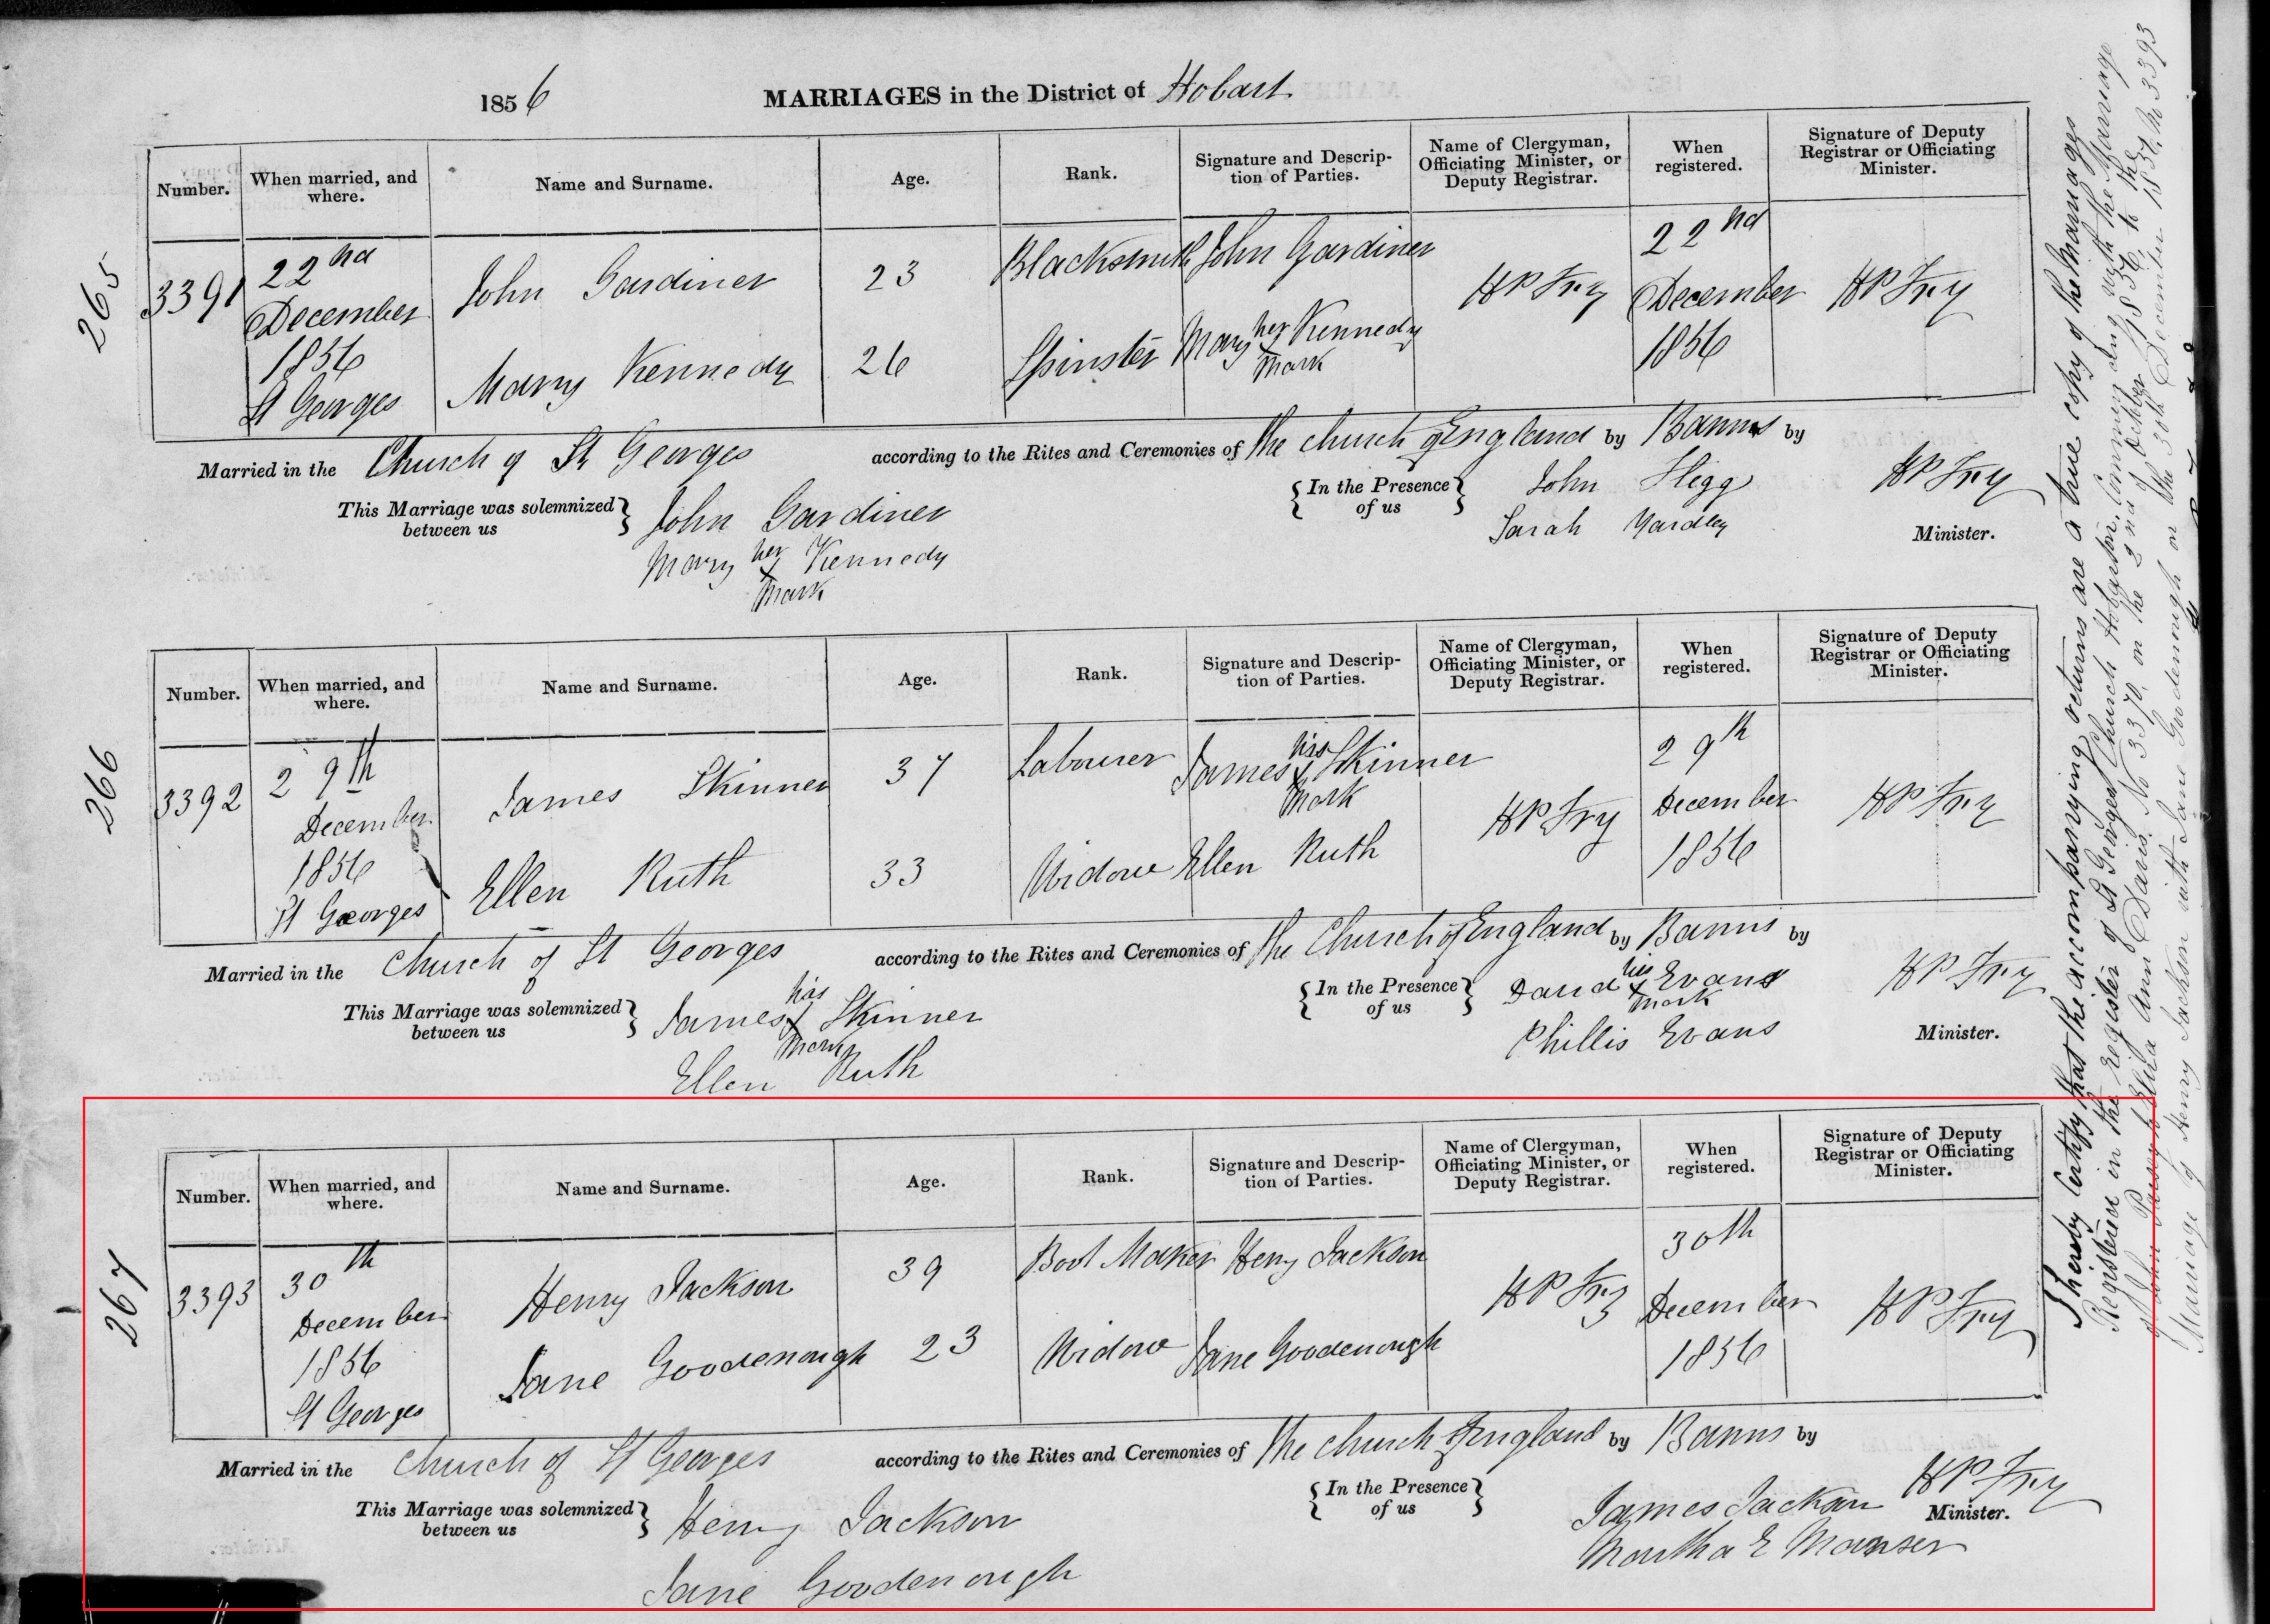 1856 MARRIAGES in the District of Hobart
Number. When married, and where. Name and Surname. Age. Rank. Signature and Description of Parties. Name of Clergyman, Officiating Minister, or Deputy Registrar. When registered. Signature of Deputy Registrar or Officiating Minister.
265
3391 22nd December 1856 St Georges
John Gardiner 23 Blacksmith John Gardiner
Mary Kennedy 26 Spinster Mary her x mark Kennedy
H P Fry 22nd December 1856 H P Fry
Married in the Church of St Georges according to the Rites and Ceremonies of the Church of England by Banns by
H P Fry
Minister.
This Marriage was solemnized between us
John Gardiner
Mary her x mark Kennedy
In the Presence of us
John Sligg
Sarah Yardley
Number. When married, and where. Name and Surname. Age. Rank. Signature and Description of Parties. Name of Clergyman, Officiating Minister, or Deputy Registrar. When registered. Signature of Deputy Registrar or Officiating Minister.
266
3392 29th December 1856 St Georges
James Skinner 37 Labourer James his x mark Skinner
Ellen Ruth 33 Widow Ellen Ruth
H P Fry 29th December 1856 H P Fry
Married in the Church of St Georges according to the Rites and Ceremonies of the Church of England by Banns by
H P Fry
Minister.
This Marriage was solemnized between us
James his x mark Skinner
Ellen Ruth
In the Presence of us
David his x mark Evans
Phillis Evans
Number. When married, and where. Name and Surname. Age. Rank. Signature and Description of Parties. Name of Clergyman, Officiating Minister, or Deputy Registrar. When registered. Signature of Deputy Registrar or Officiating Minister.
267
3393 30th December 1856 St Georges
Henry Jackson 39 Boot Maker Henry Jackson
Jane Goodenough 23 Widow Jane Goodenough
H P Fry 30th December 1856 H P Fry
Married in the Church of St Georges according to the Rites and Ceremonies of the Church of England by Banns by
H P Fry
Minister.
This Marriage was solemnized between us
Henry Jackson
Jane Goodenough
In the Presence of us
James Jackson
Martha E Manser
I hereby Certify that the accompanying returns are a true copy of the Marriages
Registered in the Register of St Georges Church Hobarton, Commencing with the Marriage
of John with Eliza Ann Davis No 3370 on the 2nd of October 1856 to the
Marriage of Henry Jackson with Jane Goodenough on the 30th December 1856 No 3393